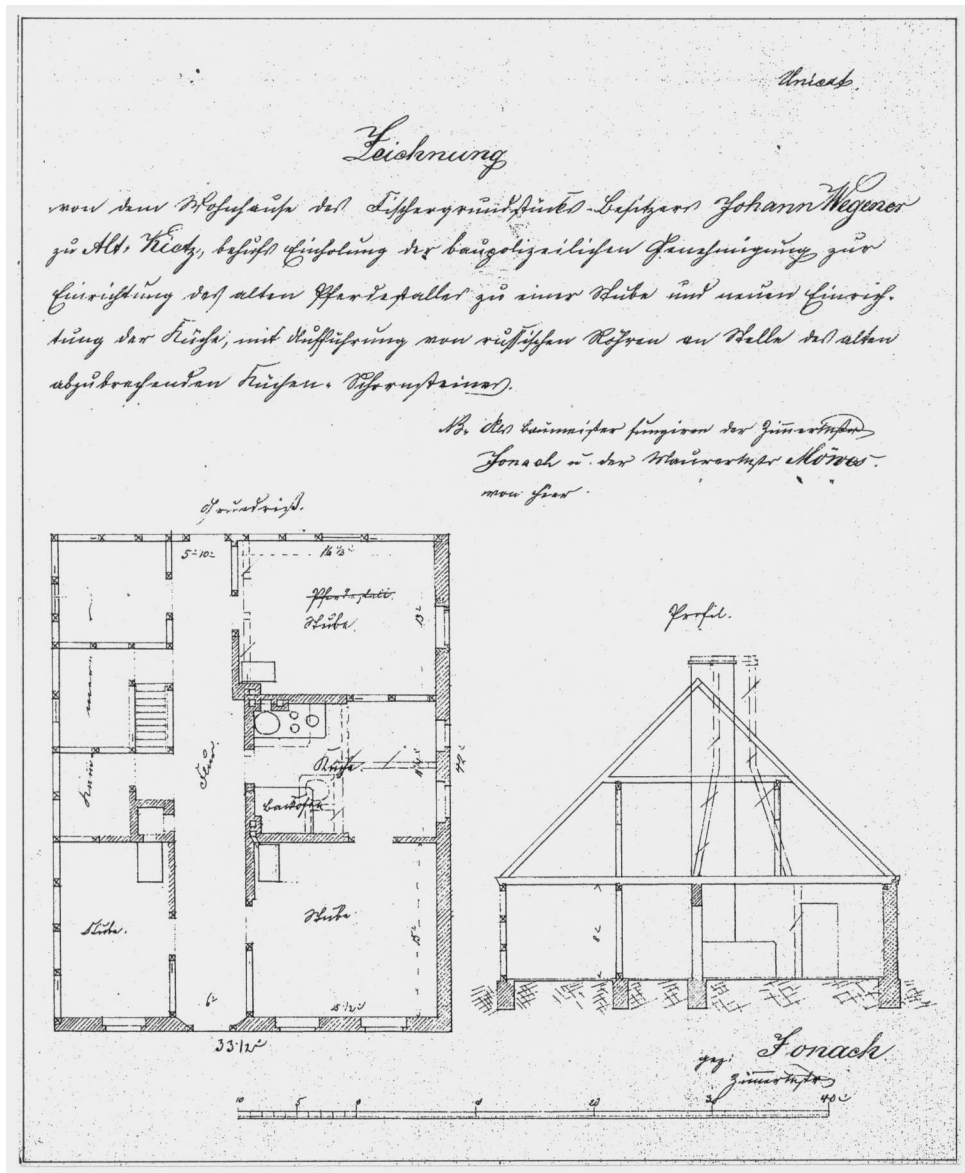 Unicat.
Zeichnung
von dem Wohnhause des Fischergrundstücks-Besitzers Johann Wegener
zu Alt-Kietz, behufs Einholung der baupolizeilichen Genehmigung zur
Einrichtung des alten Pferdestalles zu einer Stube und neuen Einrich-
tung der Küche, mit Aufführung von russischen Röhren an Stelle des alten
abzubrechenden Küchen-Schornsteines.
NB. Als Baumeister fungiren der Zimmermstr
Jonach u. der Maurermstr Möwes.
von hier.
Grundriß.
5' 10"
16½'
Pferdestall.
Stube.
13'
Profil.
Küche
Flur
Kammer
Backofen
11½'
42'
Stube.
Stube
15'
8'
6'
15½'
33½'
gez: Jonach.
Zimmermstr
10 5 0 10 20 30 40'